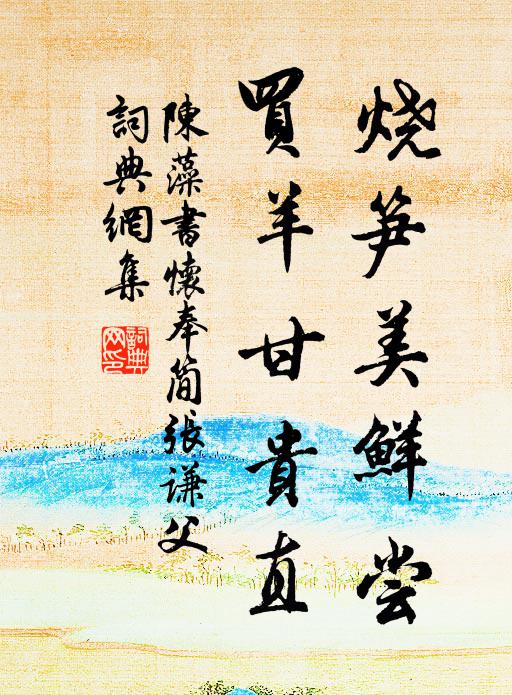 烧笋美鲜尝
買羊甘貴直
陳藻書懷奉简張謙父
詞典網集
詞典
网印